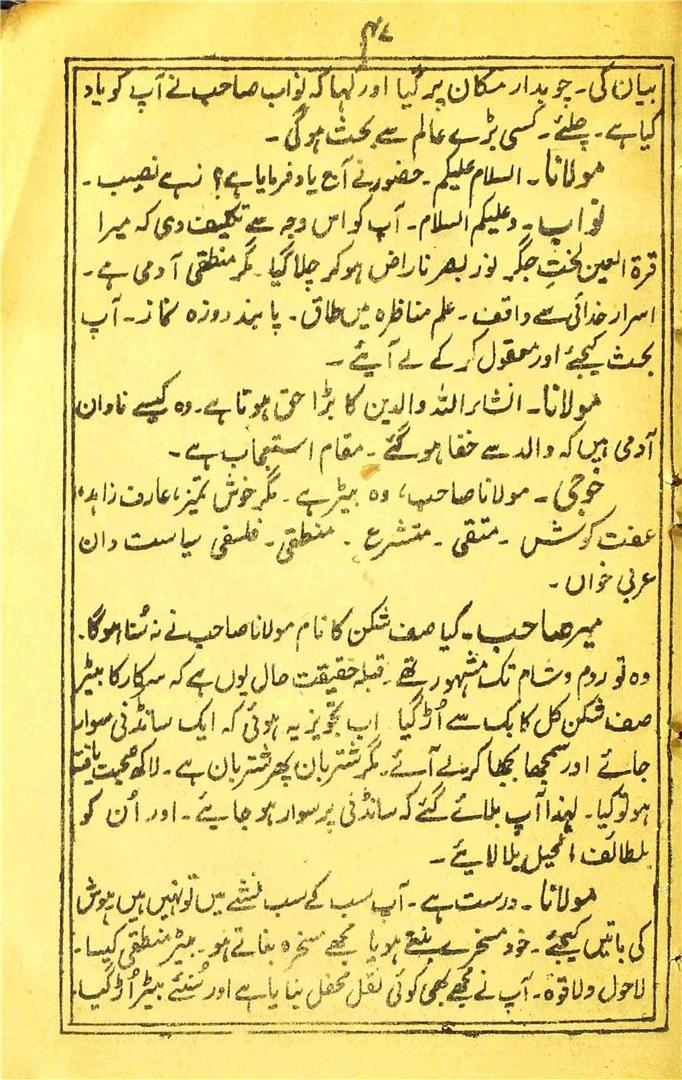 ۴۷
بیان کی۔ چوبدار مکان پر گیا اور کہا کہ نواب صاحب نے آپ کو یاد
کیا ہے۔ چلئے۔ کسی بڑے عالم سے بحث ہوگی۔
مولانا۔ السلام علیکم۔ حضور نے آج یاد فرمایا ہے؟ زہے نصیب۔
نواب۔ وعلیکم السلام۔ آپ کو اس وجہ سے تکلیف دی کہ میرا
قرۃ العین لخت جگر نور بصر ناراض ہو کر چلا گیا۔ مگر منطقی آدمی ہے۔
اسرار خدائی سے واقف۔ علم مناظرہ میں طاق۔ پابند روزہ نماز۔ آپ
بحث کیجئے اور معقول کر کے لے آیئے۔
مولانا۔ انشاء اللہ والدین کا بڑا حق ہوتا ہے۔ وہ کیسے نادان
آدمی ہیں کہ والد سے خفا ہو گئے۔ مقام استعجاب ہے۔
خوجی۔ مولانا صاحب، وہ بٹیر ہے۔ مگر خوش تمیز، عارف زاہد،
عفت کوش۔ متقی۔ متشرع۔ منطقی۔ فلسفی سیاست دان
عربی خواں۔
میر صاحب۔ کیا صف شکن کا نام مولانا صاحب نے نہ سُنا ہوگا۔
وہ تو روم و شام تک مشہور تھے۔ قبلہ حقیقت حال یوں ہے کہ سرکار کا بٹیر
صف شکن کل کابک سے اُڑ گیا۔ اب تجویز یہ ہوئی کہ ایک سانڈنی سوار
جائے اور سمجھا بجھا کر لے آئے۔ مگر شتربان پھر شتربان ہے۔ لاکھ صحبت یافتہ
ہو تو کیا۔ لہٰذا آپ بلائے گئے کہ سانڈنی پر سوار ہو جایئے۔ اور اُن کو
بلطائف الحیل بلا لایئے۔
مولانا۔ درست ہے۔ آپ سب کے سب نشے میں تو نہیں ہیں ہوش
کی باتیں کیجئے۔ خود مسخرے بنتے ہو یا مجھے مسخرہ بناتے ہو۔ بٹیر منطقی کیسا۔
لاحول ولاقوۃ۔ آپ نے مجھے بھی کوئی نقل محفل بنایا ہے اور سُنئے بٹیر اُڑ گیا۔